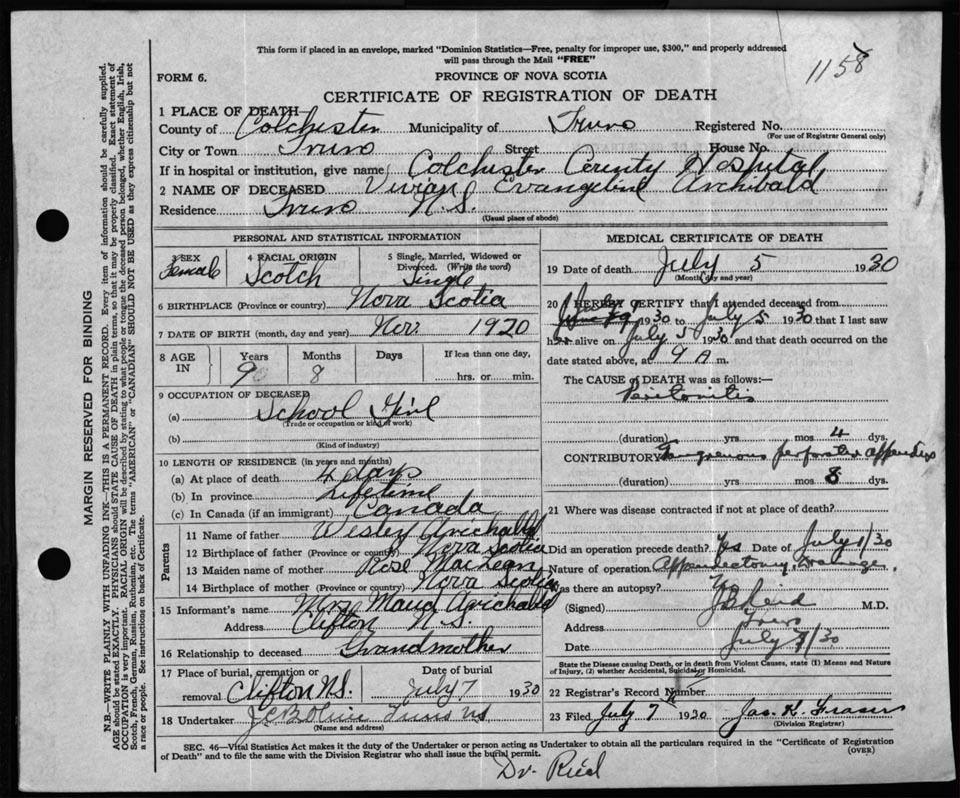 This form if placed in an envelope, marked "Dominion Statistics—Free, penalty for improper use, $300," and properly addressed
will pass through the Mail "FREE"
1158
FORM 6.
PROVINCE OF NOVA SCOTIA
CERTIFICATE OF REGISTRATION OF DEATH
1 PLACE OF DEATH—
County of Colchester Municipality of Truro Registered No.
(For use of Registrar General only)
City or Town Truro Street House No.
If in hospital or institution, give name Colchester County Hospital
2 NAME OF DECEASED Vivian Evangeline Archibald
Residence Truro N.S.
(Usual place of abode)
PERSONAL AND STATISTICAL INFORMATION
3 SEX Female
4 RACIAL ORIGIN Scotch
5 Single, Married, Widowed or Divorced. (Write the word) Single
6 BIRTHPLACE (Province or country) Nova Scotia
7 DATE OF BIRTH (month, day and year) Nov. 1920
8 AGE IN Years 9 Months 8 Days If less than one day, hrs. or min.
9 OCCUPATION OF DECEASED
(a) School Girl
(Trade or occupation or kind of work)
(b)
(Kind of industry)
10 LENGTH OF RESIDENCE (in years and months)
(a) At place of death 4 days
(b) In province Lifetime
(c) In Canada (if an immigrant) Canada
Parents
11 Name of father Wesley Archibald
12 Birthplace of father (Province or country) Nova Scotia
13 Maiden name of mother Rose MacLean
14 Birthplace of mother (Province or country) Nova Scotia
15 Informant's name Maud Archibald
Address Clifton N.S.
16 Relationship to deceased Grandmother
17 Place of burial, cremation or removal Clifton N.S. Date of burial July 7 1930
18 Undertaker Truro NS
(Name and address)
MEDICAL CERTIFICATE OF DEATH
19 Date of death July 5 1930
(Month, day and year)
20 I HEREBY CERTIFY that I attended deceased from
July 1930 to July 5 1930 that I last saw
her alive on July 5 1930 and that death occurred on the
date stated above, at 9 A m.
The CAUSE OF DEATH was as follows:—
Peritonitis
(duration) yrs. mos. 4 dys.
CONTRIBUTORY Gangrenous perforated appendix
(duration) yrs. mos. 8 dys.
21 Where was disease contracted if not at place of death?
Did an operation precede death? Yes Date of July 1/30
Nature of operation Appendectomy, Drainage.
Was there an autopsy?
(Signed) M.D.
Address Truro
Date July /30
State the Disease causing Death, or in death from Violent Causes, state (1) Means and Nature
of Injury, (2) whether Accidental, Suicidal or Homicidal.
22 Registrar's Record Number
23 Filed July 7 1930 Jas. K. Fraser
(Division Registrar)
SEC. 46—Vital Statistics Act makes it the duty of the Undertaker or person acting as Undertaker to obtain all the particulars required in the "Certificate of Registration
of Death" and to file the same with the Division Registrar who shall issue the burial permit.
(OVER)
Dr. Reid
MARGIN RESERVED FOR BINDING
N.B.—WRITE PLAINLY WITH UNFADING INK—THIS IS A PERMANENT RECORD. Every item of information should be carefully supplied.
AGE should be stated EXACTLY. PHYSICIANS should STATE CAUSE OF DEATH in plain terms, so that it may be properly classified. Exact statement of
OCCUPATION is very important. RACIAL ORIGIN will be described by stating to what people or tongue the deceased person belonged, whether English, Irish,
Scotch, French, German, Russian, Ruthenian, etc. The terms "AMERICAN" or "CANADIAN" SHOULD NOT BE USED as they express citizenship but not
a race or people. See instructions on back of Certificate.